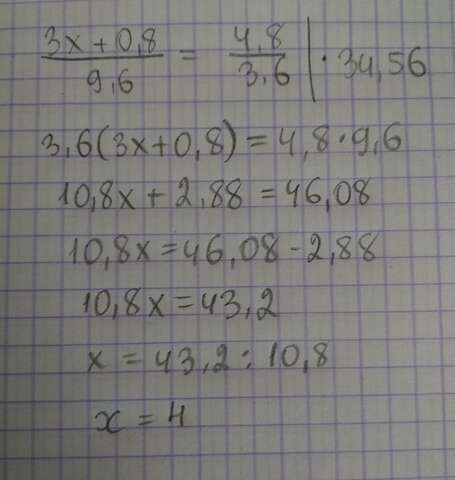 (3x+0,8)/9,6 = 4,8/3,6 | · 34,56
3,6(3x+0,8)=4,8·9,6
10,8x+2,88=46,08
10,8x=46,08-2,88
10,8x=43,2
x=43,2:10,8
x=4